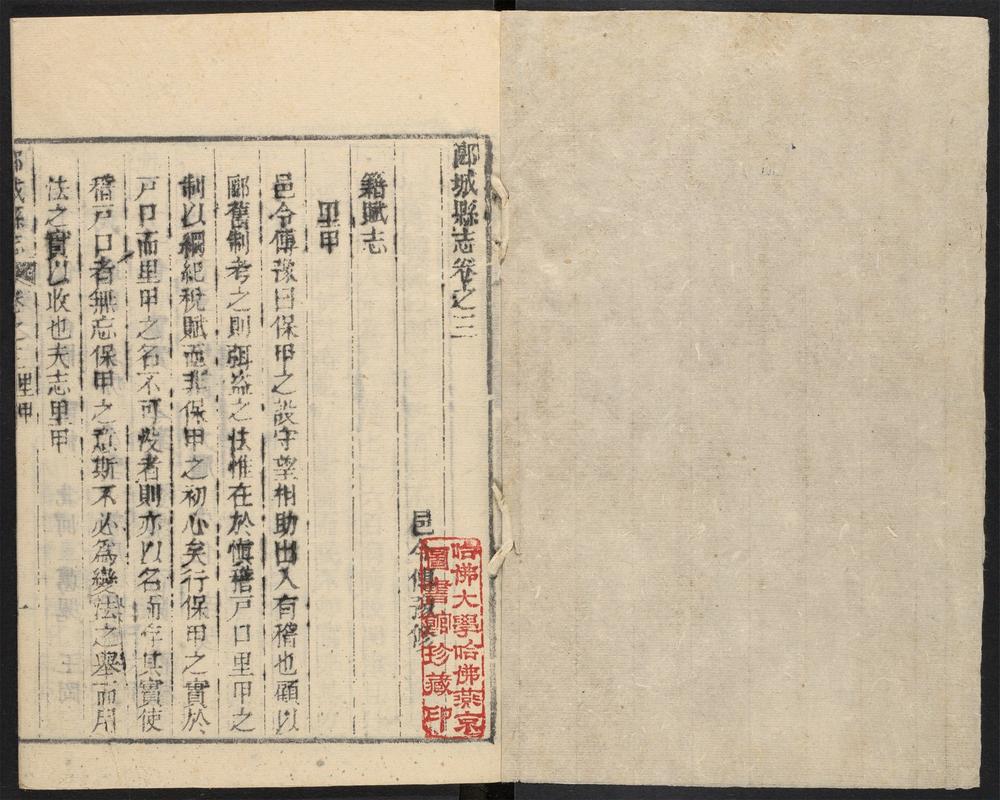 郾城縣志卷之三
邑令傅豫修
籍賦志
里甲
邑令傅豫曰保甲之設守望相助出入有稽也顧以
郾舊制考之則弭盜之法惟在於慎稽戶口里甲之
制以綱紀稅賦而非保甲之初心矣行保甲之實於
戶口而里甲之名不可沒者則亦以名而存其實使
稽戶口者無忘保甲之意斯不必為變法之舉而用
法之實以收也夫志里甲
郾城縣志 卷之三里甲
一
哈佛大學哈佛燕京
圖書館珍藏印